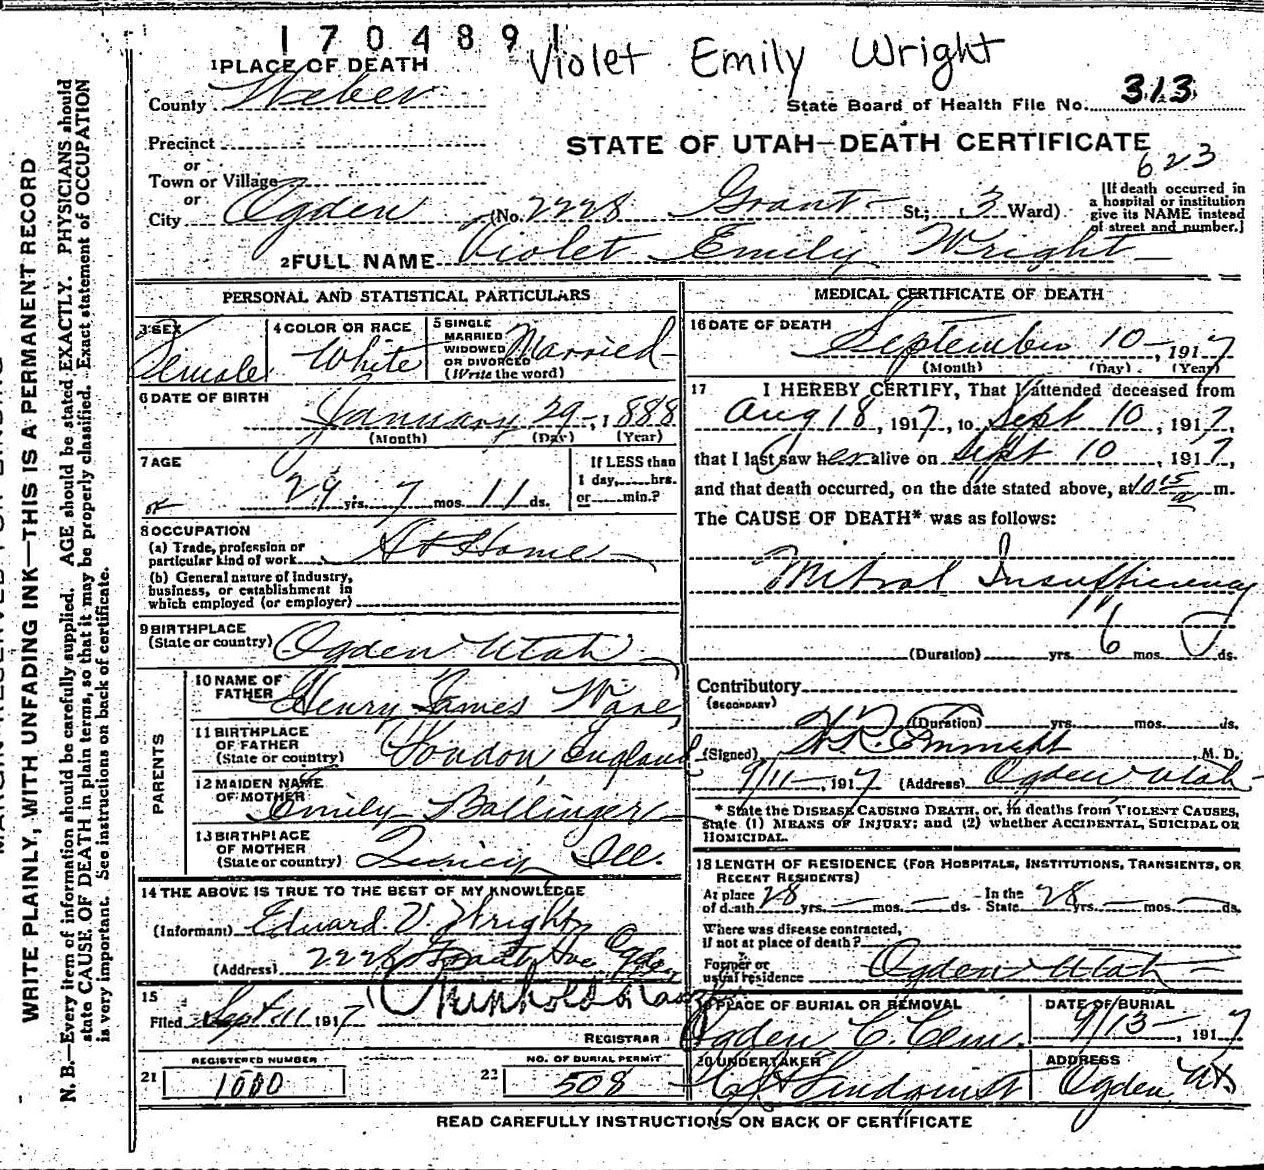 170489
Violet Emily Wright
1 PLACE OF DEATH
County Weber
State Board of Health File No. 313
Precinct
or
Town or Village
or
City Ogden (No. 2228 Grant St.; 3 Ward)
STATE OF UTAH—DEATH CERTIFICATE
623
[If death occurred in
a hospital or institution
give its NAME instead
of street and number.]
2 FULL NAME Violet Emily Wright
PERSONAL AND STATISTICAL PARTICULARS
3 SEX Female
4 COLOR OR RACE White
5 SINGLE
MARRIED
WIDOWED
OR DIVORCED
(Write the word) Married
6 DATE OF BIRTH
January 29, 1888
(Month) (Day) (Year)
7 AGE
29 yrs. 7 mos. 11 ds.
If LESS than
1 day, hrs.
or min.?
8 OCCUPATION
(a) Trade, profession or
particular kind of work At Home
(b) General nature of industry,
business, or establishment in
which employed (or employer)
9 BIRTHPLACE
(State or country) Ogden Utah
PARENTS
10 NAME OF
FATHER Henry James Ware
11 BIRTHPLACE
OF FATHER
(State or country) London England
12 MAIDEN NAME
OF MOTHER Emily Ballinger
13 BIRTHPLACE
OF MOTHER
(State or country) Quincy Ill.
14 THE ABOVE IS TRUE TO THE BEST OF MY KNOWLEDGE
(Informant) Edward V. Wright
(Address) 2228 Grant Ave Ogden
15
Filed Sept 11 1917
REGISTRAR
REGISTERED NUMBER
21 1000
NO. OF BURIAL PERMIT
22 508
MEDICAL CERTIFICATE OF DEATH
16 DATE OF DEATH
September 10, 1917
(Month) (Day) (Year)
17 I HEREBY CERTIFY, That I attended deceased from
Aug 18, 1917, to Sept 10, 1917,
that I last saw her alive on Sept 10, 1917,
and that death occurred, on the date stated above, at 10 15 a m.
The CAUSE OF DEATH* was as follows:
Mitral Insufficiency
(Duration) yrs. 6 mos. ds.
Contributory
(SECONDARY)
(Duration) yrs. mos. ds.
(Signed) M. D.
9/11, 1917 (Address) Ogden Utah
* State the DISEASE CAUSING DEATH, or, in deaths from VIOLENT CAUSES,
state (1) MEANS OF INJURY; and (2) whether ACCIDENTAL, SUICIDAL OR
HOMICIDAL.
18 LENGTH OF RESIDENCE (FOR HOSPITALS, INSTITUTIONS, TRANSIENTS, OR
RECENT RESIDENTS)
At place
of death 28 yrs. mos. ds. In the
State 28 yrs. mos. ds.
Where was disease contracted,
if not at place of death?
Former or
usual residence Ogden Utah
19 PLACE OF BURIAL OR REMOVAL
Ogden C. Cem.
DATE OF BURIAL
9/13, 1917
20 UNDERTAKER
Lindquist
ADDRESS
Ogden Ut
READ CAREFULLY INSTRUCTIONS ON BACK OF CERTIFICATE
WRITE PLAINLY, WITH UNFADING INK—THIS IS A PERMANENT RECORD
N. B.—Every item of information should be carefully supplied. AGE should be stated EXACTLY. PHYSICIANS should
state CAUSE OF DEATH in plain terms, so that it may be properly classified. Exact statement of OCCUPATION
is very important. See instructions on back of certificate.